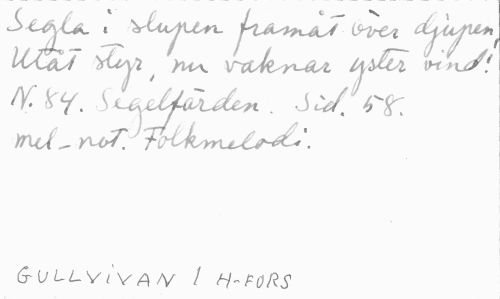 Segla i slupen framåt över djupen,
Utåt styr, nu vaknar yster vind!
N. 84. Segelfärden. Sid. 58.
mel-not. Folkmelodi.
GULLVIVAN I H-FORS